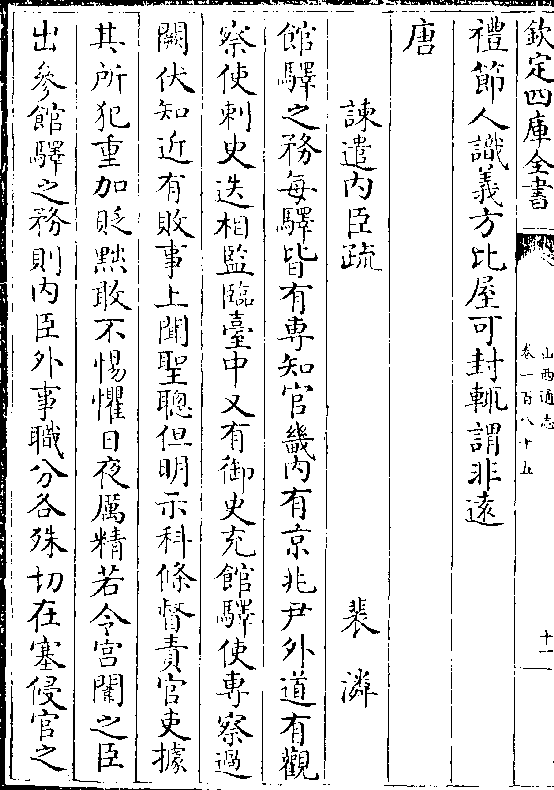 欽定四庫全書
山西通志
卷一百八十五
十一
禮節人識義方比屋可封輒謂非遠
唐
諫遣内臣疏　裴潾
館驛之務每驛皆有專知官畿内有京兆尹外道有觀
察使刺史迭相監臨臺中又有御史充館驛使專察過
闕伏知近有敗事上聞聖聰但明示科條督責官吏據
其所犯重加貶黜敢不惕懼日夜厲精若令宫闈之臣
出參館驛之務則内臣外事職分各殊切在塞侵官之